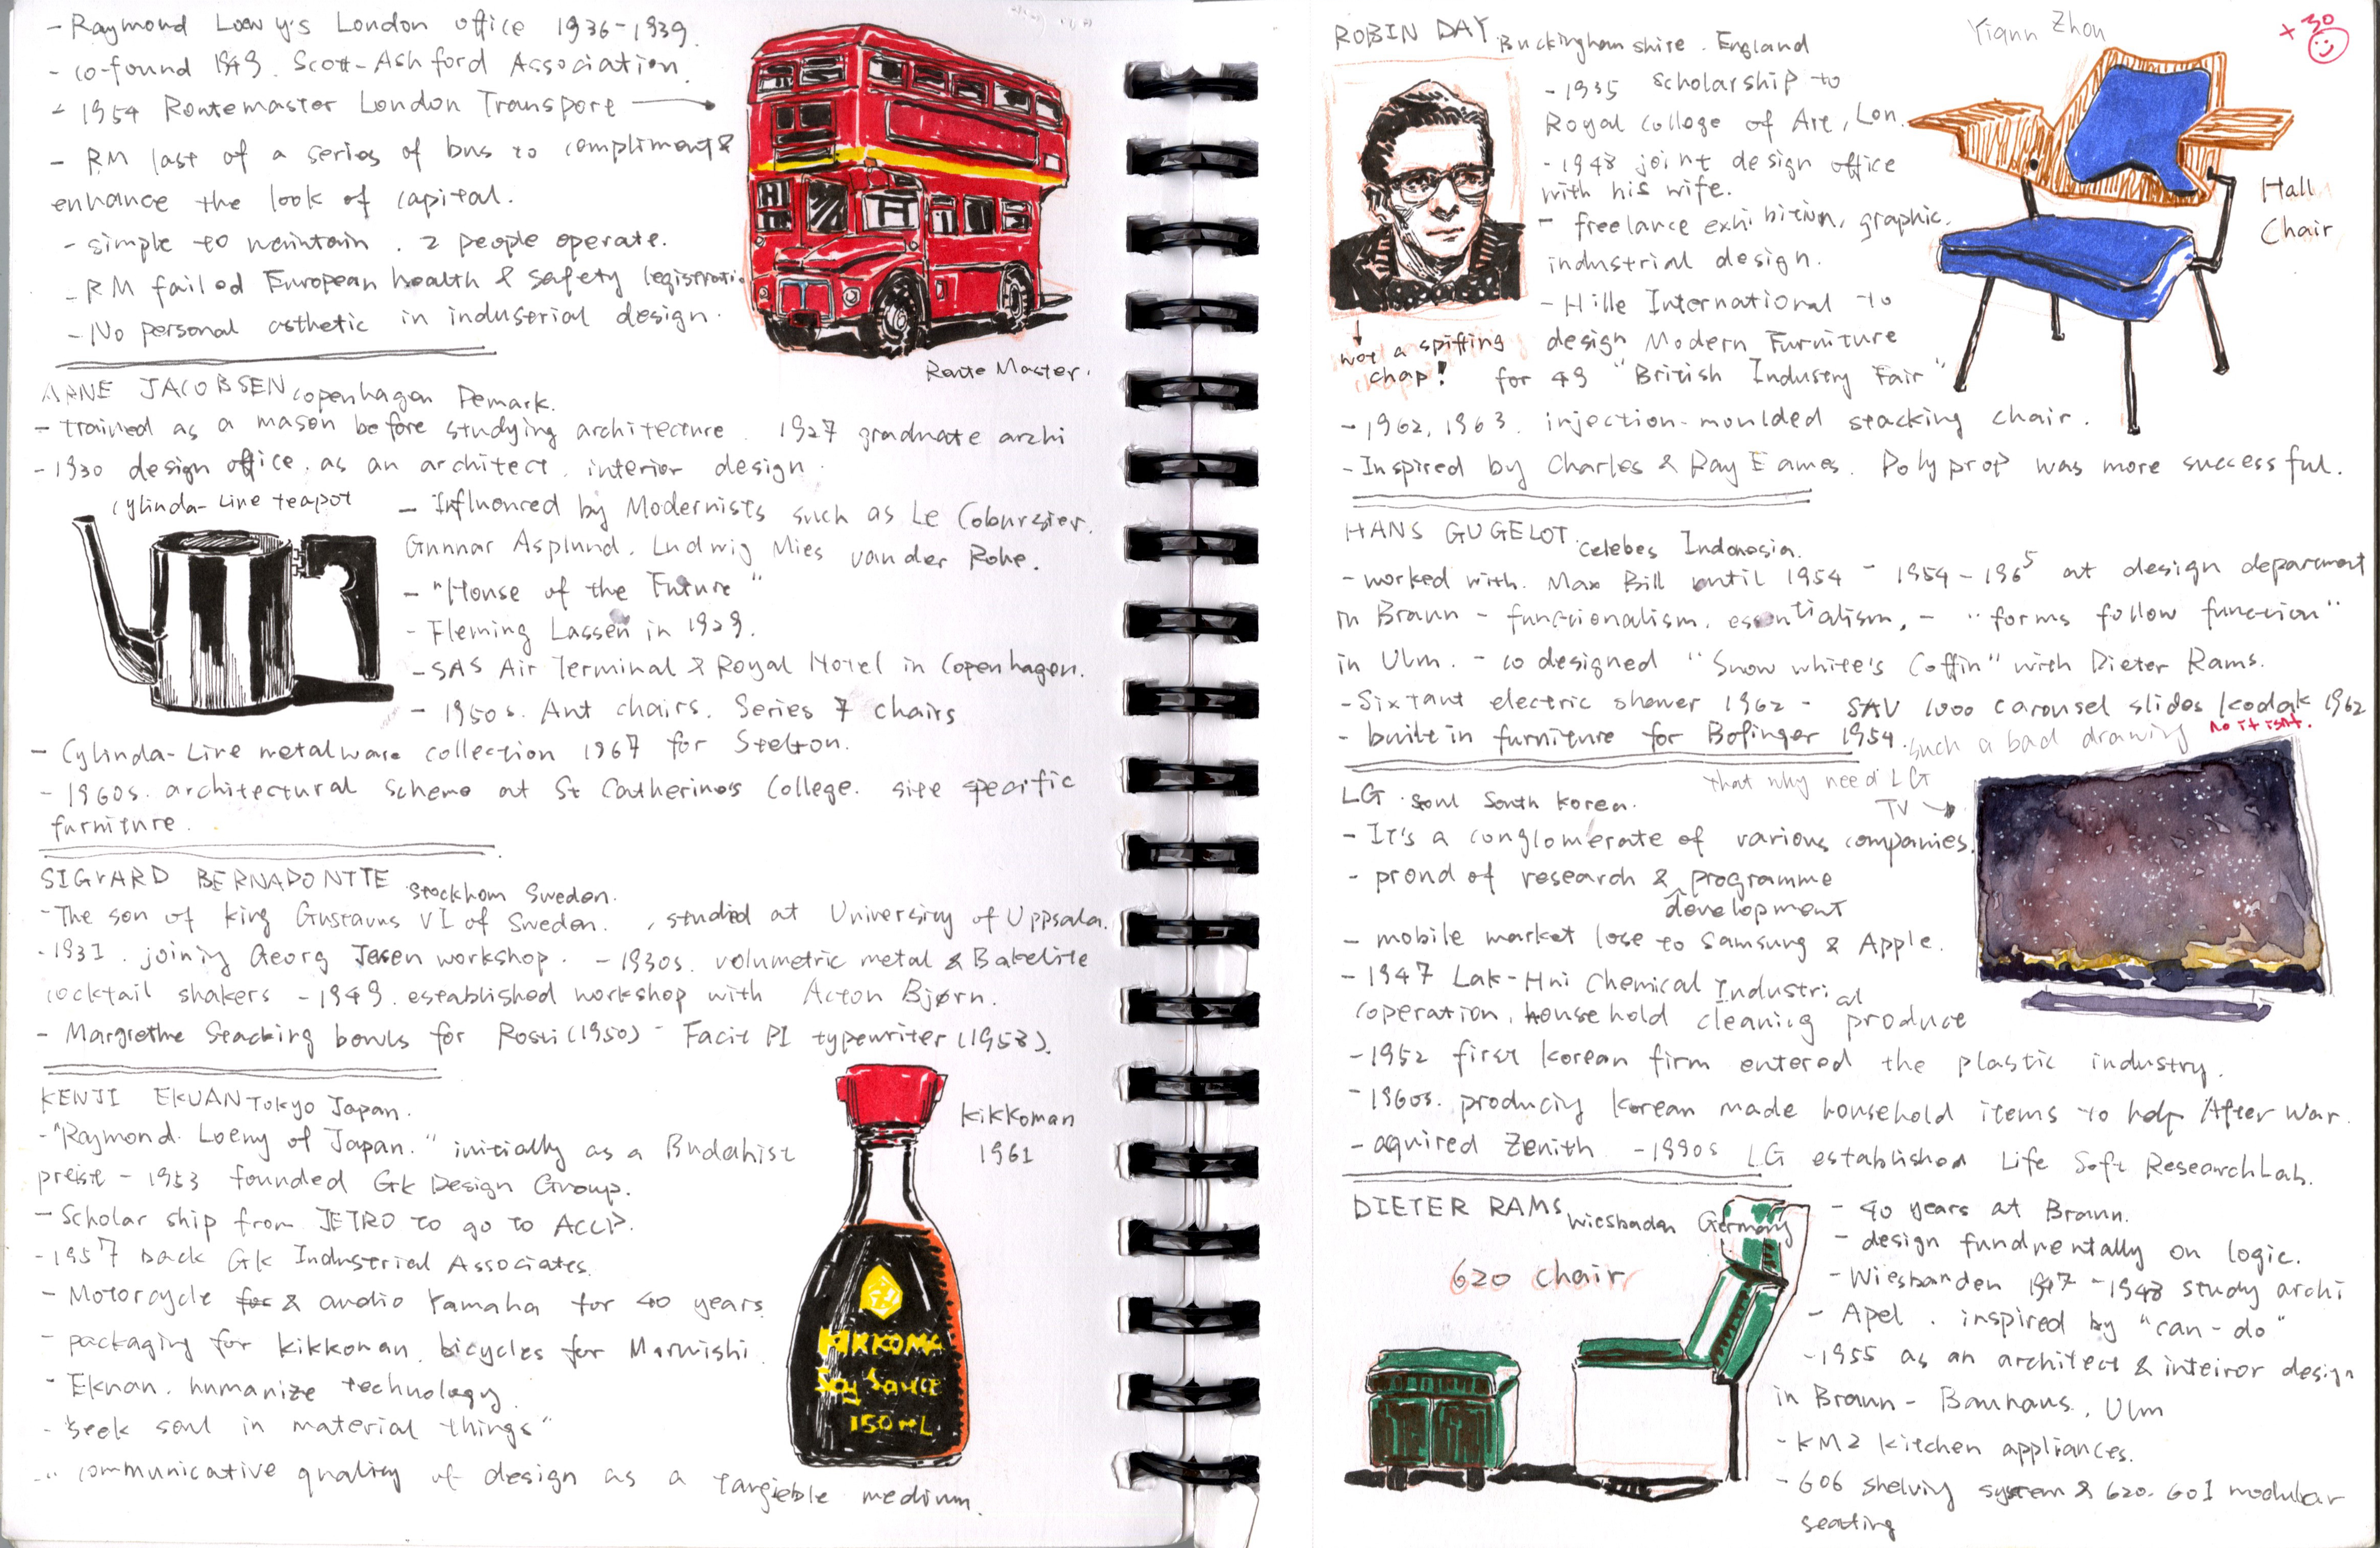 - Raymond Loewy's London office 1936-1939.
- co-found 1949. Scott-Ashford Association.
- 1954 Routemaster London Transport
- RM last of a series of bus to compliment &
enhance the look of capital.
- simple to maintain. 2 people operate.
- RM failed European health & safety legistratio
- No personal asthetic in industrial design.
Route Master.
ARNE JACOBSEN copenhagen Demark.
- trained as a mason before studying architecture. 1927 graduate archi
- 1930 design office. as an architect. interior design.
cylinda-Line teapot
- Influenced by Modernists such as Le Cobursier.
Gunnar Asplund. Ludwig Mies van der Rohe.
- "House of the Future"
- Fleming Lassen in 1929.
- SAS Air Terminal & Royal Hotel in Copenhagen.
- 1950s. Ant chairs. Series 7 chairs
- Cylinda-Line metalware collection 1967 for Stelton.
- 1960s. architectural scheme at St Catherine's College. site specific
furniture.
SIGVARD BERNADONTTE. Stockhom Sweden.
- The son of king Gustavus VI of Sweden. , studied at University of Uppsala.
- 1931. joining Georg Jesen workshop. - 1930s. volumetric metal & Bakelite
cocktail shakers - 1949. established workshop with Acton Bjørn.
- Margrethe Stacking bowls for Rosti (1950) - Facit P1 typewriter (1958).
KENJI EKUAN Tokyo Japan.
- "Raymond Loewy of Japan." initially as a Buddahist
preist - 1953 founded GK Design Group.
- Scholar ship from JETRO to go to ACCP.
- 1957 back GK Industrial Associates.
- Motorcycle for & audio Yamaha for 40 years.
- packaging for kikkoman, bicycles for Maruishi.
- Ekuan. humanize technology.
- "seek soul in material things"
- " communicative quality of design as a tangieble medium.
Kikkoman
1961
KIKKOMA
Soy Sauce
150mL
ROBIN DAY. Buckingham shire. England
Yiann Zhou
+30
- 1935 scholarship to
Royal college of Art, Lon.
- 1948 joint design office
with his wife.
- freelance exhibition, graphic.
industrial design.
- Hille International to
design Modern Furniture
for 49 "British Industry Fair"
not a spiffing
chap!
Hall
Chair
- 1962, 1963. injection-moulded stacking chair.
- Inspired by Charles & Ray Eames. Polyprop was more successful.
HANS GUGELOT. Celebes Indonesia.
- worked with Max Bill until 1954 - 1954-1965 at design department
in Braun - functionalism, essentialism, - "forms follow function"
in Ulm. - co designed "Snow white's Coffin" with Dieter Rams.
- Sixtant electric shaver 1962 - SAV 1000 carousel slides kodak 1962
- built in furniture for Bofinger 1954.
such a bad drawing
No it isnt.
that why need LG
TV
LG. Soul South Korea.
- It's a conglomerate of various companies.
- proud of research & programme
development
- mobile market lose to Samsung & Apple.
- 1947 Lak-Hui Chemical Industrial
coperation, household cleaning produce
- 1952 first korean firm entered the plastic industry.
- 1960s. producing korean made household items to help After War.
- aquired Zenith - 1990s LG established Life Soft Research Lab.
DIETER RAMS Wiesbaden Germany
620 chair
- 40 years at Braun.
- design fundmentally on logic.
- Wiesbanden 1947 - 1948 study archi
- Apel. inspired by "can-do"
- 1955 as an architect & inteiror design
in Braun - Bauhaus, Ulm
- KM2 kitchen appliances.
- 606 shelving system & 620. 601 modular
seating